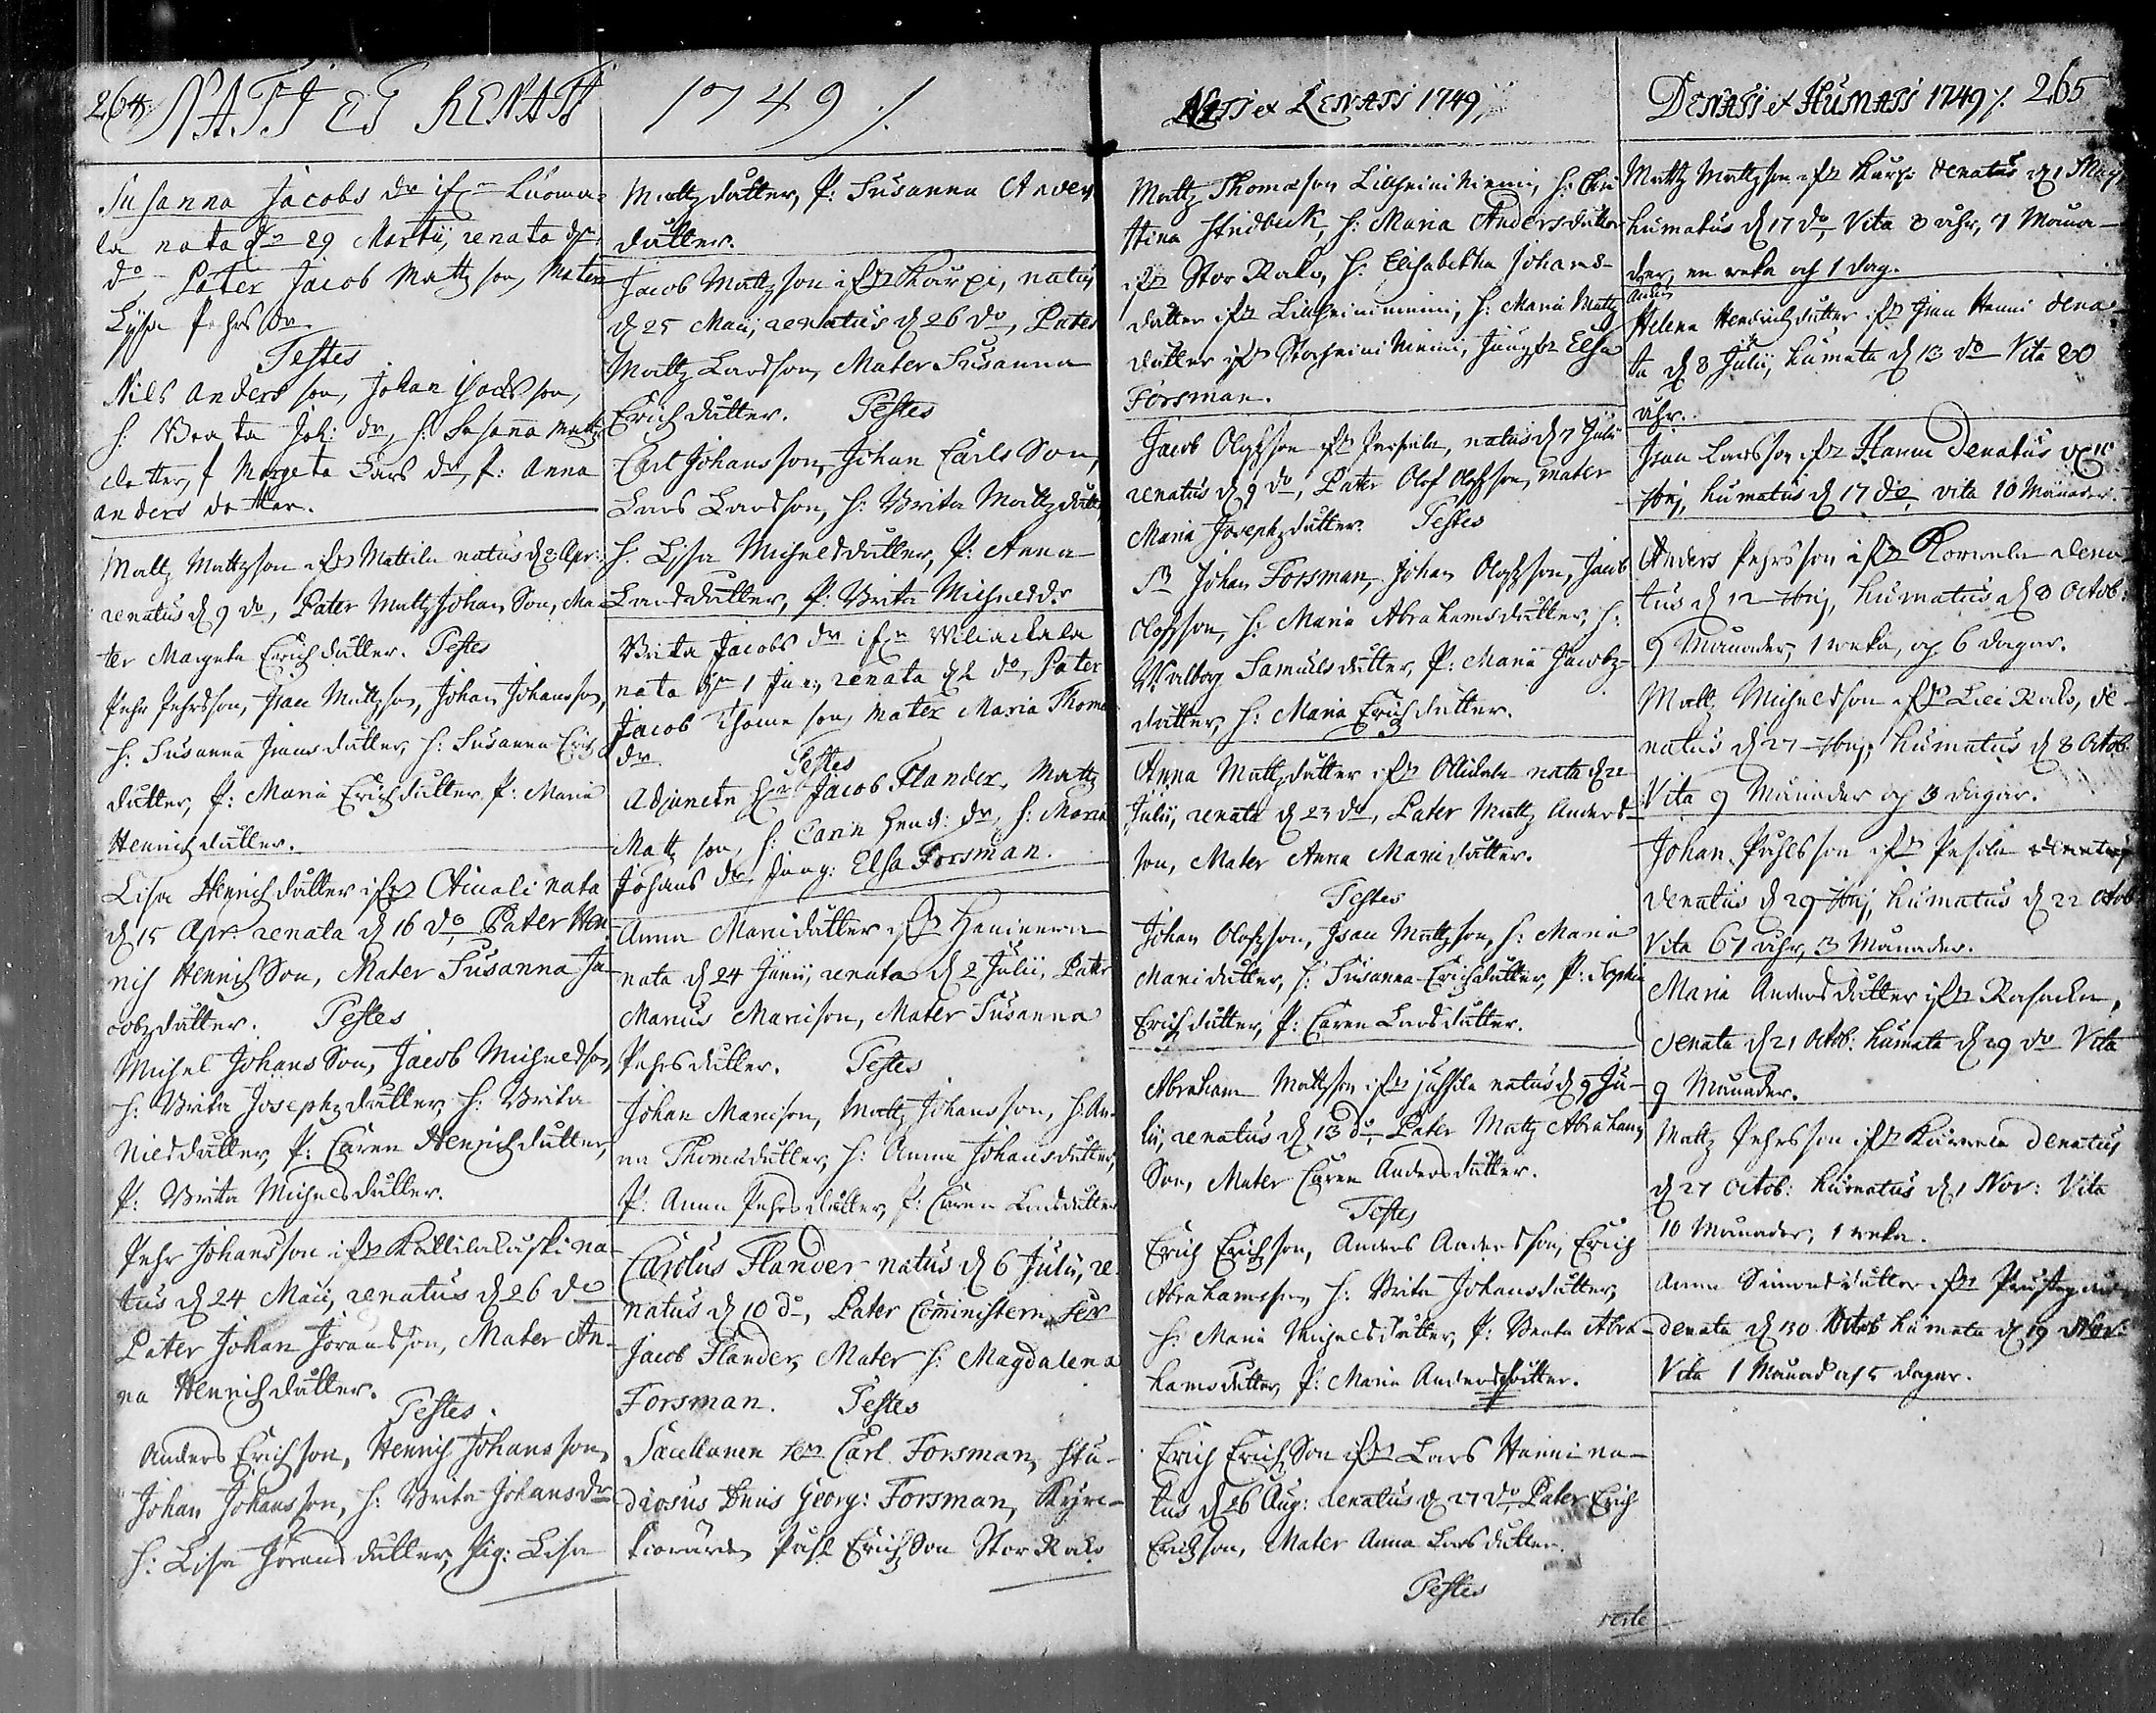 264. NATI ET RENATI
1749 ./.
Susanna Jacobs dr ifrn Luoma-
la nata dn 29 Martii, renata dn
do, Pater Jacob Mattz son, Mater
Lijsa Pehrs dr.
Testes
Nils anders son, Johan Jacobs son,
h: Beata Joh: dr, h: Susanna Mattz
dotter, h Margeta Lars dr, p: Anna
anders dotter.
Mattz Mattzson ifrn Mattila natus d 8 Apr:
renatus d 9 do, Pater Mattz Johans Son, Ma-
ter Margeta Erichdutter. Testes
Pehr Pehrsson, Isaac Mattzson, Johan Johansson,
h: Susanna Isaacsdutter, h: Susanna Erich
dutter, P: Maria Erichdutter, P: Maria
Henrichdutter.
Lisa Henrichdutter ifrn nata
d 15 Apr: renata d 16 do, Pater Hen-
rich Henrich Son, Mater Susanna Ja-
cobzdutter. Testes
Michel Johans Son, Jacob Michelsson,
h: Brita Josephzdutter, h: Brita
Nielsdutter, P: Caren Henrichdutter,
P: Brita Michelsdutter.
Pehr Johansson ifrn na-
tus d 24 Maii, renatus d 26 do
Pater Johan Joransson, Mater An-
na Henrichdutter.
Testes.
Anders Erichson, Henrich Johansson,
Johan Johansson, h: Brita Johansdr
h: Lisa Joransdutter, Pig: Lisa
Mattzdutter, P: Susanna Anders
dutter.
Jacob Mattzson ifrn Karpi, natus
d 25 Maii, renatus d 26 do, Pater
Mattz Larsson, Mater Susanna
Erichdutter. Testes
Carl Johansson, Johan Carls Son,
Lars Larsson, h: Brita Mattzdutter,
h. Lisa Michelsdutter, P: Anna
Larsdutter, P: Brita Michelsdr
Brita Jacobs dr ifrn Wiliackala
nata dn 1 Jun:, renata d 2 do, Pater
Jacob Thome son, Mater Maria Thom
dr. Testes
Adjuncten Hr Jacob Flander, Mattz
Mattz son, h: Carin Hend: dr, h: Maria
Johans dr Jung: Elsa Forsman.
Anna Marcidutter ifrn
nata d 24 Junii, renata d 2 Julii, Pater
Marcus Marcison, Mater Susanna
Pehrsdutter. Testes
Johan Marcison, Mattz Johansson, h: An-
na Thomædutter, h: Anna Johansdutter,
P: Anna Pehrsdutter, P: Caren Larsdutter
Carolus Flander natus d 6 Julii, re-
natus d 10 do, Pater Comministern Herr
Jacob Flander, Mater h: Magdalena
Forsman. Testes
Sacellanen Herr Carl Forsman, Stu-
diosus Dnus Georg: Forsman, Kyrc-
kiowärden Påhl Erich Son Stor Kalo
NATI et RENATI 1749,
Mattz Thomæson Lillheiniemi, h: Chri
stina Heidbeck, h: Maria Andersdutter
ifrn Stor Kalo, h: Elisabetha Johans-
dutter ifrn Lillheiniemi, h: Maria Mattz
dutter ifrn Storheiniemi, Jungfr Elsa
Forsman.
Jacob Olofzson ifrn natus d 7 Julii
renatus d 9 do, Pater Olof Olofzson, mater
Maria Josephzdutter. Testes
Johan Forsman, Johan Olofzson, Jacob
Olofzson, h: Maria Abrahamsdutter, h:
Walborg Samuelsdutter, P: Maria Jacobz-
dutter, h: Maria Erichdutter.
Anna Mattzdutter ifrn Ollickala nata d 22
Julii, renata d 23 do, Pater Mattz Anders-
son, Mater Anna Marcidutter.
Testes
Johan Olofzson, Isaac Mattzson, h: Maria
Marcidutter, h: Susanna Erichdutter, P: Sophia
Erichdutter, P: Caren Larsdutter.
Abraham Mattzson ifrn Jussila natus d 9 Ju-
lii, renatus d 13 do, Pater Mattz Abrahams
Son, Mater Caren Andersdutter.
Testes
Erich Erichson, Anders Andersson, Erich
Abrahamsson, h: Brita Johansdutter,
h: Maria Michelsdutter, P: Beata Abra-
hamsdutter, P: Maria Andersdutter.
Erich Erich Son ifrn Lars Hannu na-
tus d 26 Aug: renatus d 27 do Pater Erich
Erichson, Mater Anna Larsdutter.
Testes
verte
DENATI et HUMATI 1749 ./. 265
Mattz Mattzson ifrn Karpi denatus d 1 Maij
humatus d 17 do, Vita 8 åhr, 7 Måna-
der, en weka och 1 dag.
Helena Hendrichdutter ifrn Isac Hannu dena-
ta d 8 Julii, humata d 13 do Vita 80
åhr.
Isaac Larsson ifrn Hannu Denatus d 10
7brj, humatus d 17 do, vita 10 Månader.
Anders Pehrsson ifrn Korwela dena
tus d 12 7brj, humatus d 8 Octob:
9 Månader, 1 weka, och 6 dagar.
Mattz Michelsson ifrn Kalo, de-
natus d 27 7brj, humatus d 8 Octob:
Vita 9 Månader och 3 dagar.
Johan Påhlsson ifrn Pesola
denatus d 29 7brj, humatus d 22 Octob
Vita 67 åhr, 3 Månader.
Maria Andersdutter ifrn
denata d 21 Octob: humata d 29 do Vita
9 Månader.
Mattz Pehrsson ifrn denatus
d 27 Octob: humatus d 1 Nov: Vita
10 Månader, 1 weka.
Anna Simonsdutter ifrn
denata d 30 Octob humata d 19 Nov:
Vita 1 Månad och 5 dagar.